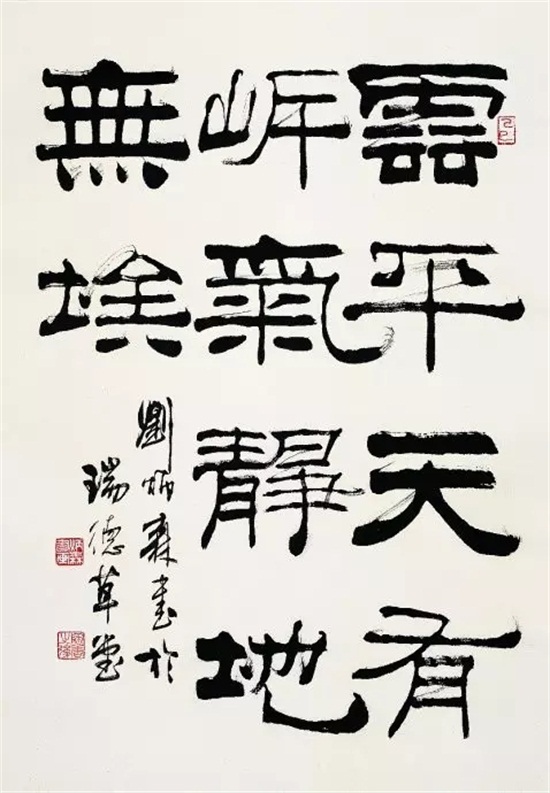 雲平天有
㟁氣靜地
無埃
劉炳森書於
瑞德草堂